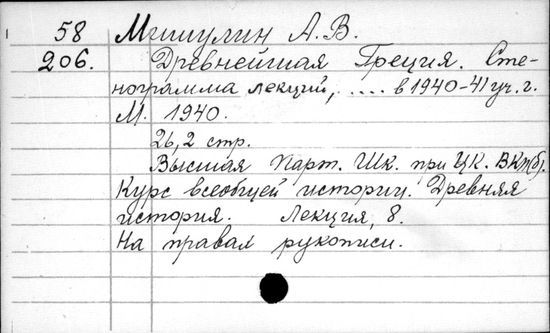 58 Мишулин А.В.
206. Древнейшая Греция. Сте-
нограмма лекций, .... в 1940-41 уч. г.
М. 1940.
26, 2 стр.
Высшая Парт. Шк. при ЦК. ВКП(б).
Курс всеобщей истории. Древняя
история. Лекция, 8.
На правах рукописи.